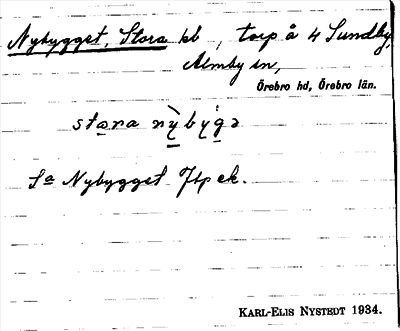 Nybygget, Stora kl , torp å 4 Sundby,
Almby sn,
Örebro hd, Örebro län.
stara nỳbýgə
Sa Nybygget Jtp ek.
KARL-ELIS NYSTEDT 1934.